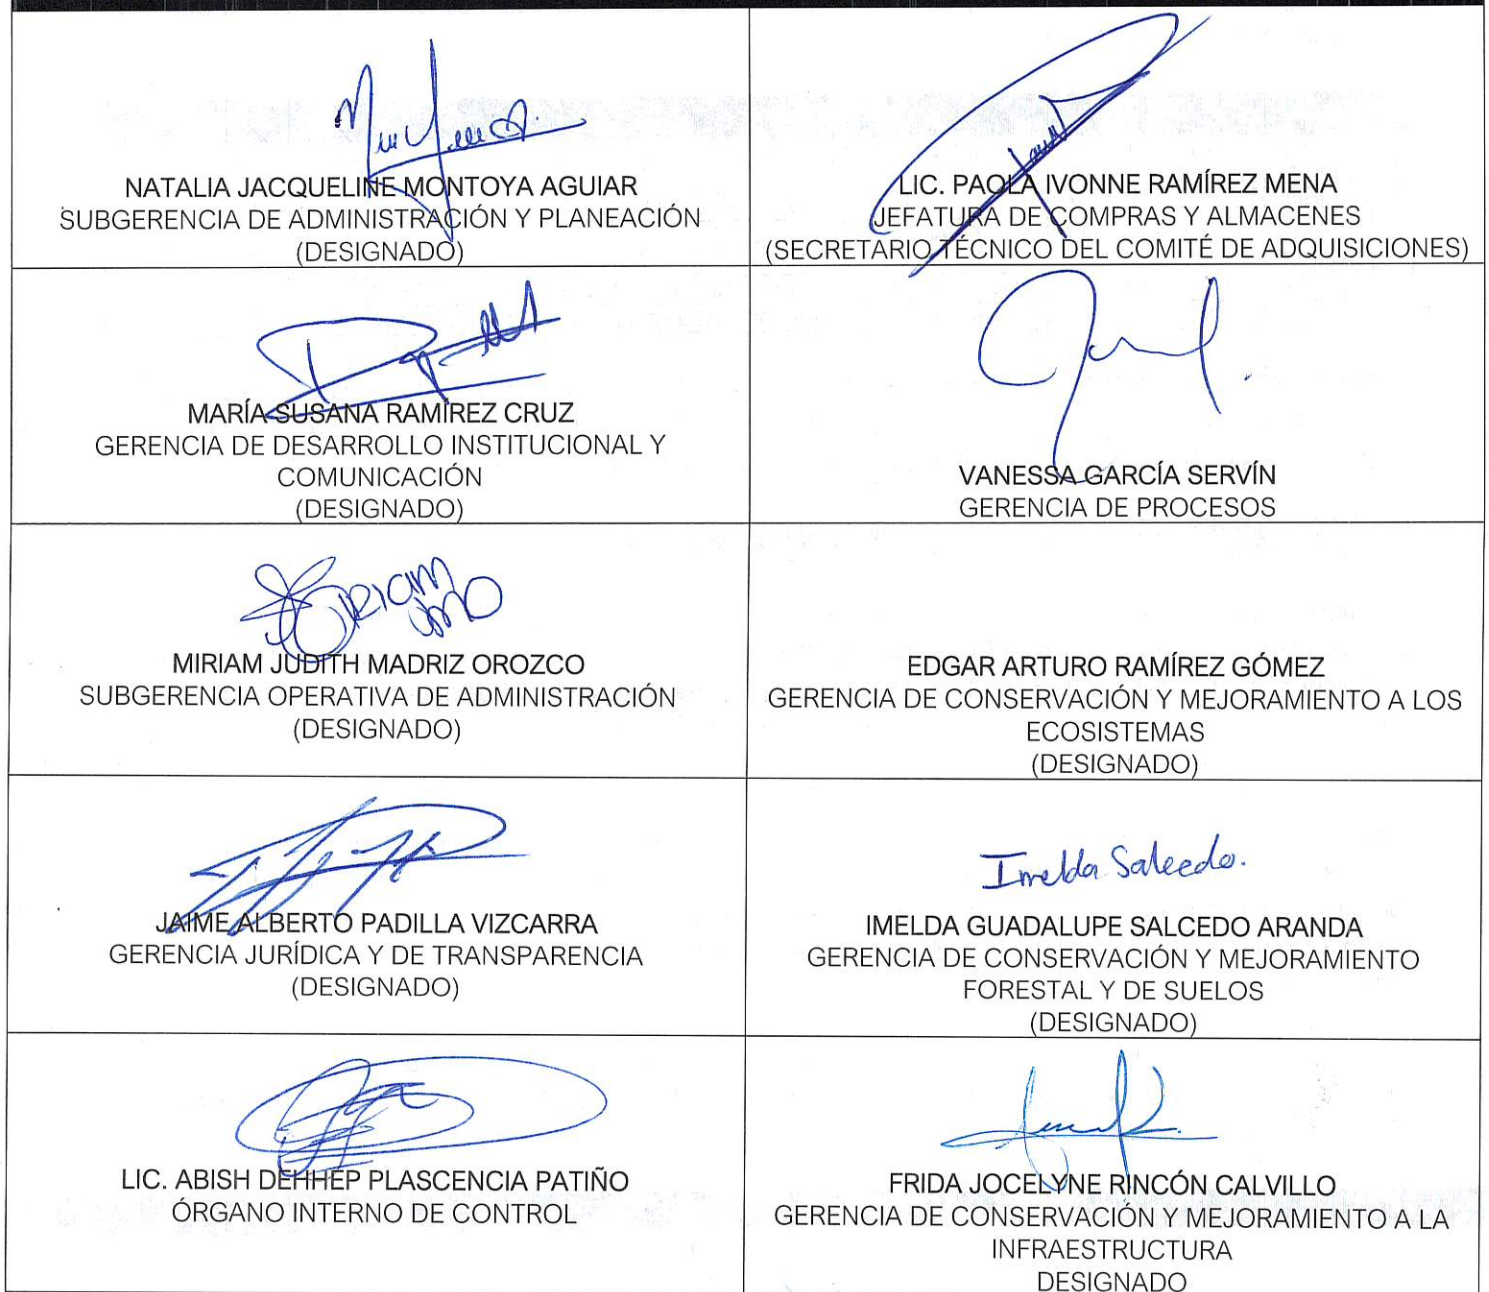 NATALIA JACQUELINE MONTOYA AGUIAR
SUBGERENCIA DE ADMINISTRACIÓN Y PLANEACIÓN
(DESIGNADO)
LIC. PAOLA IVONNE RAMÍREZ MENA
JEFATURA DE COMPRAS Y ALMACENES
(SECRETARIO TÉCNICO DEL COMITÉ DE ADQUISICIONES)
MARÍA SUSANA RAMÍREZ CRUZ
GERENCIA DE DESARROLLO INSTITUCIONAL Y
COMUNICACIÓN
(DESIGNADO)
VANESSA GARCÍA SERVÍN
GERENCIA DE PROCESOS
MIRIAM JUDITH MADRIZ OROZCO
SUBGERENCIA OPERATIVA DE ADMINISTRACIÓN
(DESIGNADO)
EDGAR ARTURO RAMÍREZ GÓMEZ
GERENCIA DE CONSERVACIÓN Y MEJORAMIENTO A LOS
ECOSISTEMAS
(DESIGNADO)
JAIME ALBERTO PADILLA VIZCARRA
GERENCIA JURÍDICA Y DE TRANSPARENCIA
(DESIGNADO)
Imelda Salcedo.
IMELDA GUADALUPE SALCEDO ARANDA
GERENCIA DE CONSERVACIÓN Y MEJORAMIENTO
FORESTAL Y DE SUELOS
(DESIGNADO)
LIC. ABISH DEHHEP PLASCENCIA PATIÑO
ÓRGANO INTERNO DE CONTROL
FRIDA JOCELYNE RINCÓN CALVILLO
GERENCIA DE CONSERVACIÓN Y MEJORAMIENTO A LA
INFRAESTRUCTURA
DESIGNADO